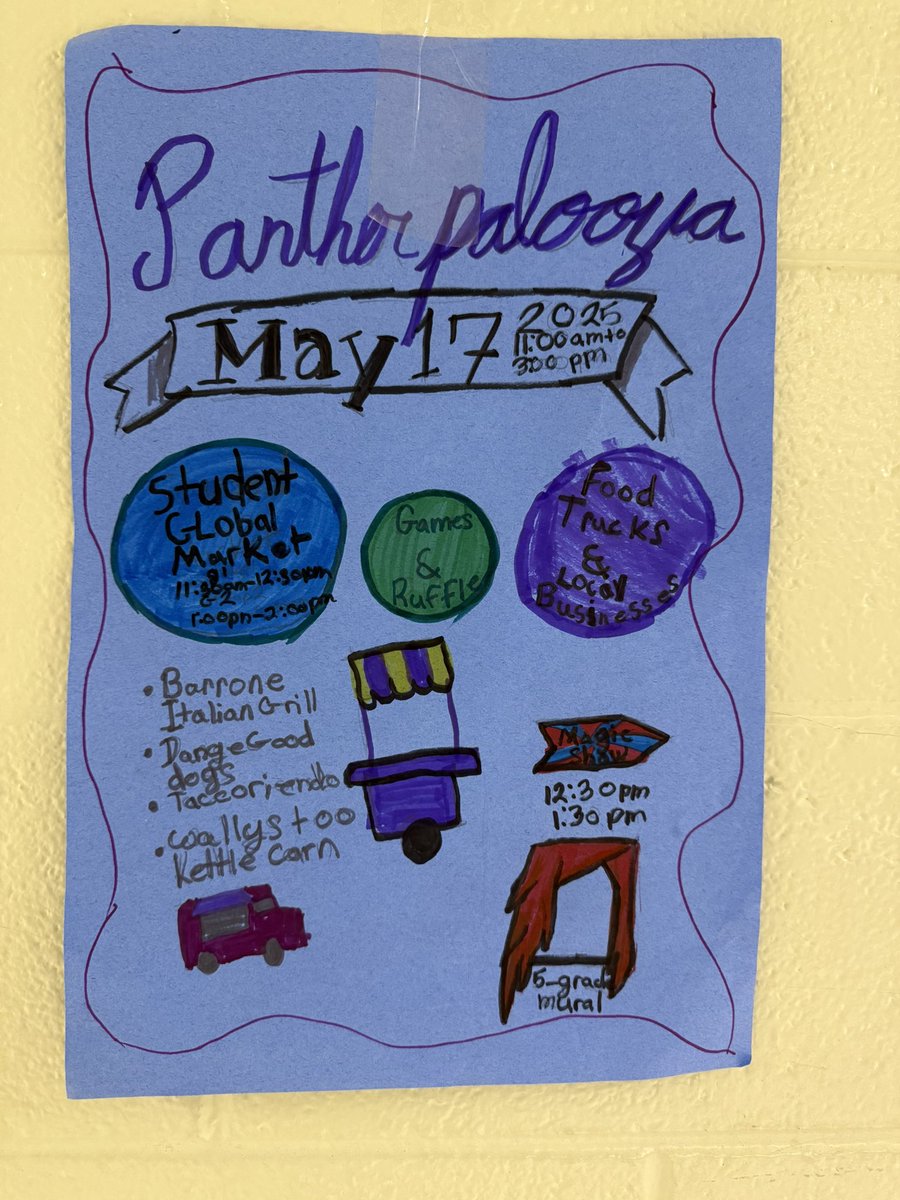 Pantherpalooza
May 17
2025
11:00 am to
3:00 pm
Student
Global
Market
-12:30pm
1:00pn-2:00pm
Games
&
Ruffle
Food
Trucks
&
Local
Businesses
• Barrone
Italian Grill
• Dange Good
dogs
•
• wallys too
kettle corn
Magic
Show
12:30pm
1:30pm
5-grade
mural